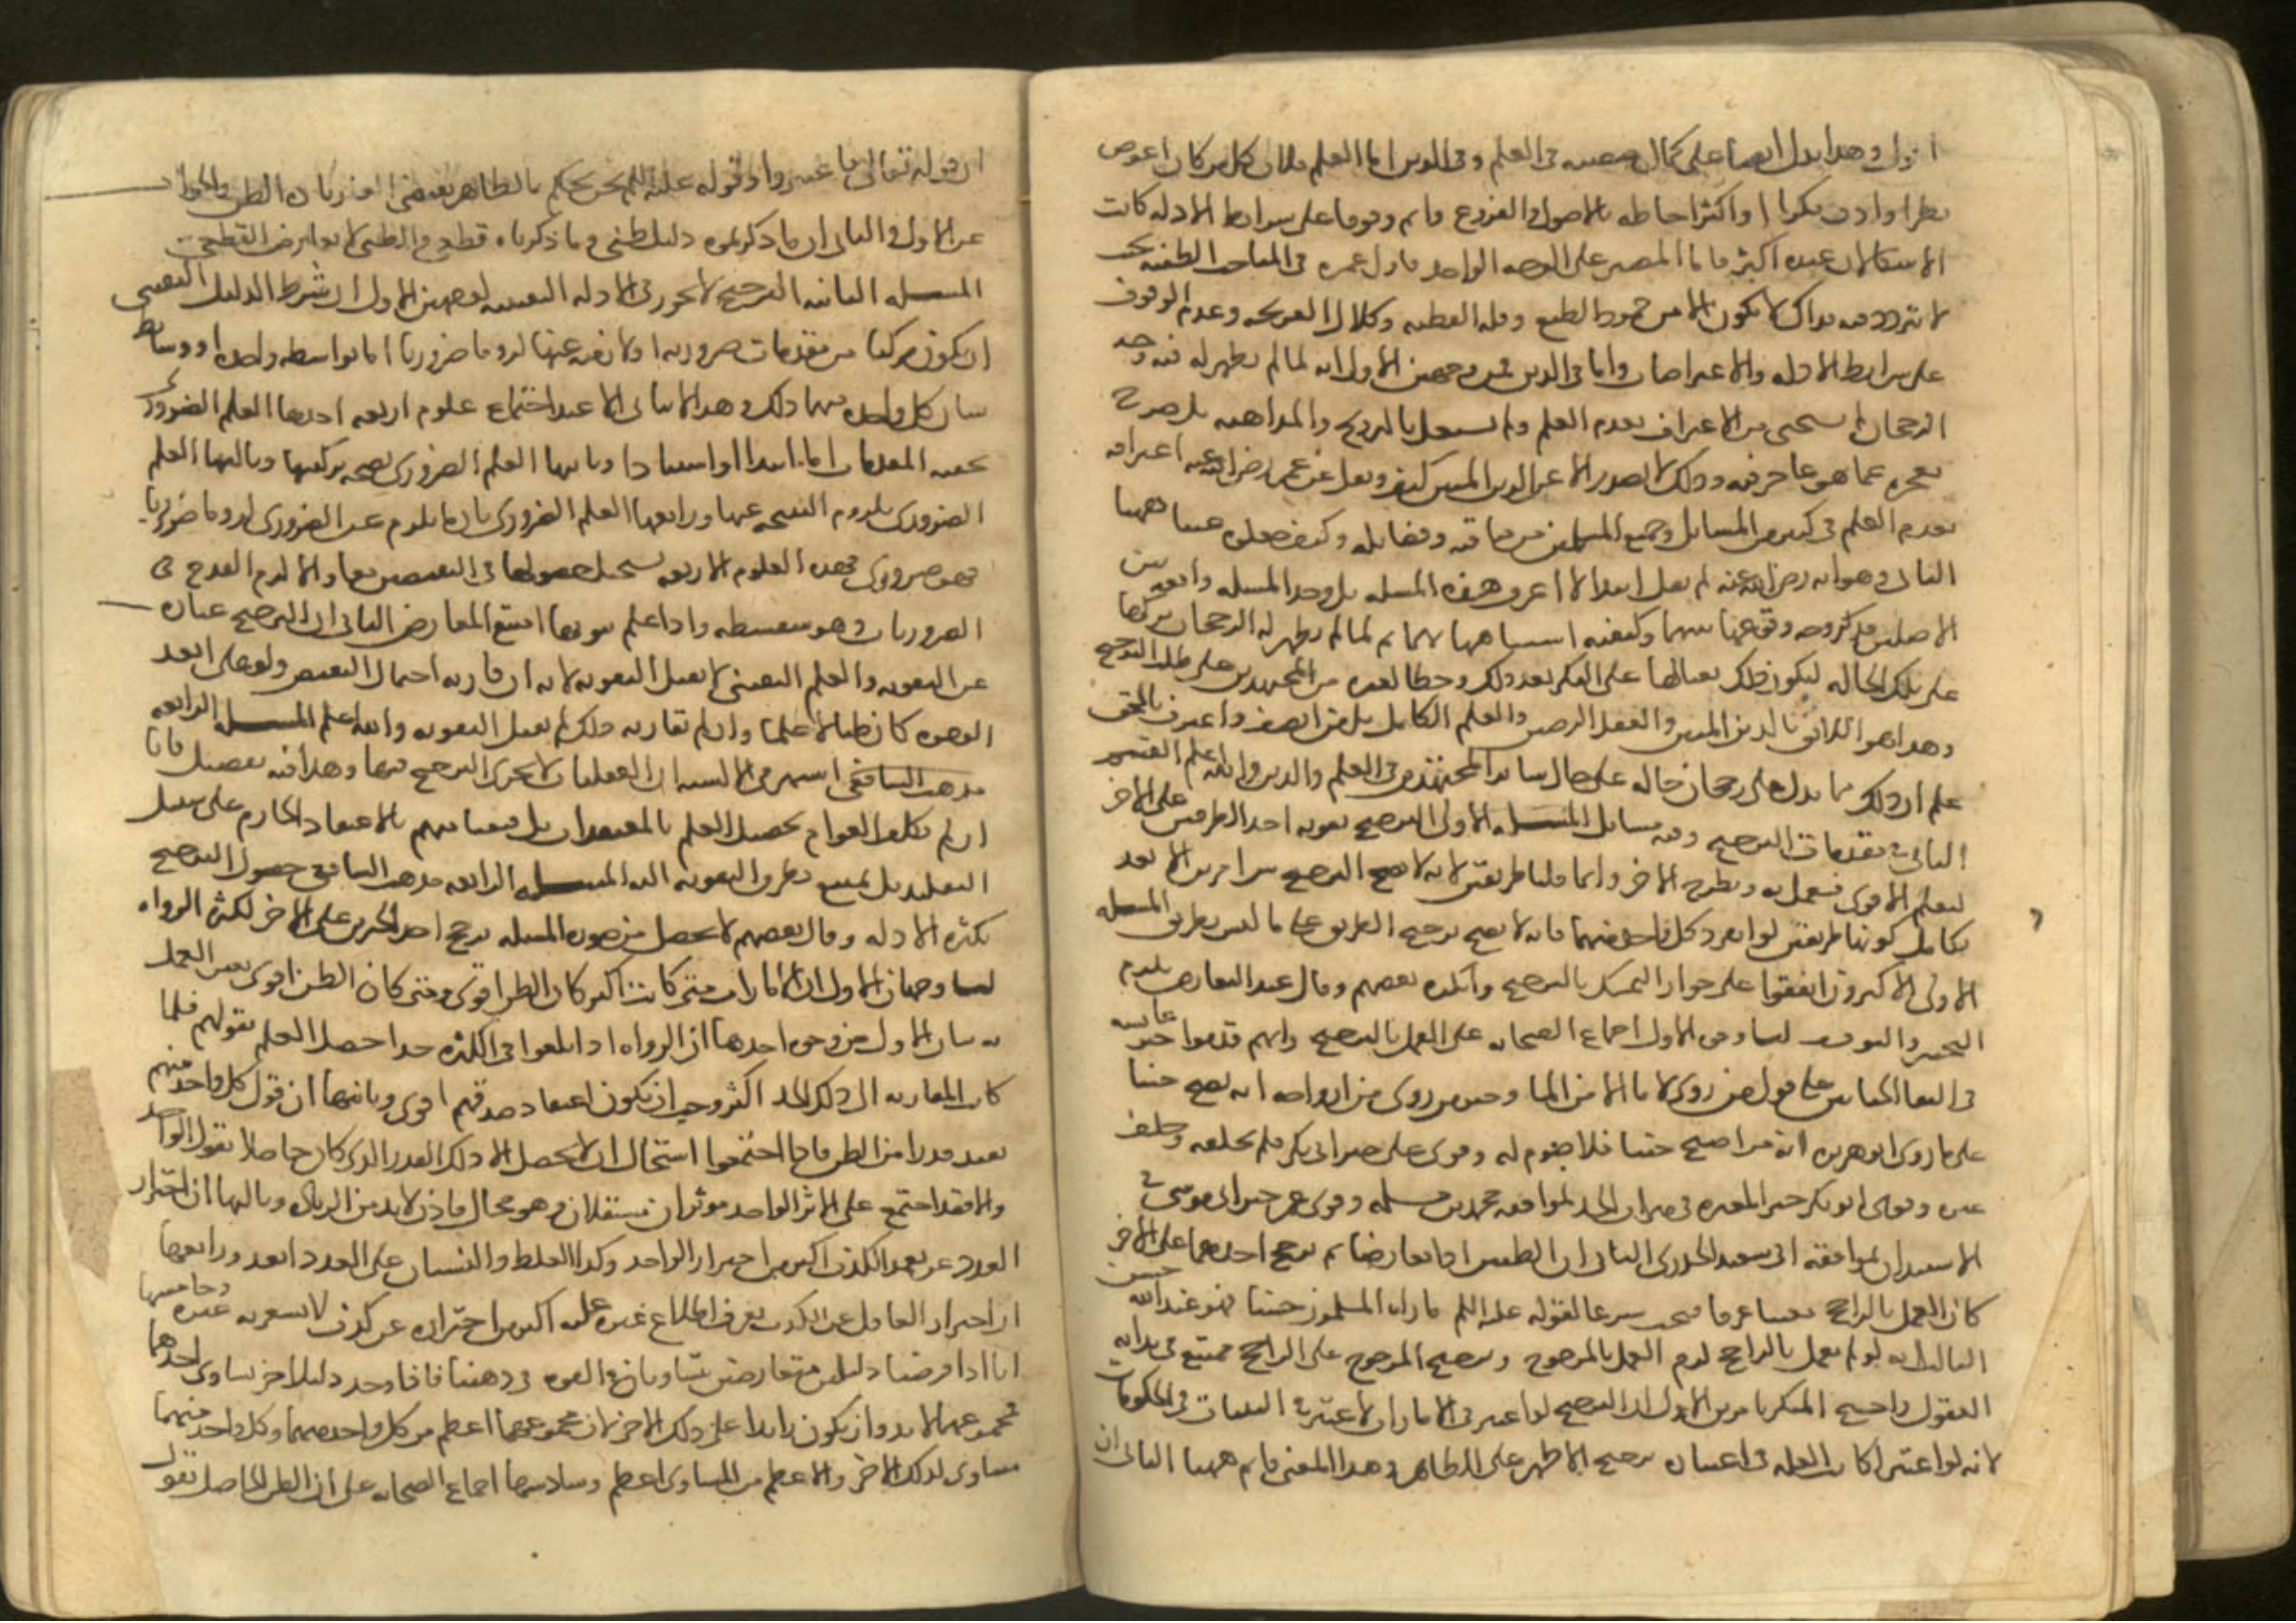 اقول وهذا يدل ايضا على كمال منصبه في العلم وفي الدين اما العلم فلان كل من كان اغوص
نظرا وادق فكرا واكثر احاطه بالاصول والفروع واتم وقوفا على شرايط الادله كانت
الاشكالات عنده اكثر فاما المصر على الوجه الواحد طول عمره في المباحث الظنيه بحيث
لا يتردد فيه فذاك لا يكون الا من جمود الطبع وقله الفطنه وكلال القريحه وعدم الوقوف
على شرايط الادله والاعتراضات واما في الدين فمن وجهين الاول انه لما لم يظهر له فيه وجه
الرجحان لم يستحي من الاعتراف بعدم العلم ولم يشتغل بالترويج والمداهنه بل صرح
بعجزه عما هو عاجز فيه وذلك لا يصدر الا عن الدين المتين كيف ونقل عن عمر رضي الله عنه اعترافه
بعدم العلم في كثير من المسائل وجميع المسلمين من مناقبه وفضايله وكيف جعلوه عيبا ههنا
الثاني وهو انه رضي الله عنه لم يقل ابتدا لا اعرف هذه المسله بل وجد المسله واقعه بين
الاصلين فذكر وجه وقوعها بينهما وكيفيه اشتباهها بهما ثم لما لم يظهر له الرجحان تركها
على تلك الحاله ليكون ذلك بعثا لها على الفكر بعد ذلك وحثا لغيره من المجتهدين على طلب الترجيح
وهذا هو اللائق بالدين المتين والعقل الرصين والعلم الكامل بل من انصف واعترف بالحق
علم ان ذلك مما يدل على رجحان حاله على حال ساير المجتهدين في العلم والدين والله اعلم القسم
الثاني في مقدمات الترجيح وفيه مسائل المسله الاولى الترجيح تقويه احد الطرفين على الاخر
ليعلم الاقوى فيعمل به ويطرح الاخر وانما قلنا طريقين لانه لا يصح الترجيح بين امرين الا بعد
تكامل كونهما طريقين لو انفرد كل واحد منهما فانه لا يصح ترجيح الطريق على ما ليس بطريق المسله
الاولى الاكثرون اتفقوا على جواز التمسك بالترجيح وانكره بعضهم وقال عند التعارض يلزم
التخيير والتوقف لنا وجوه الاول اجماع الصحابه على العمل بالترجيح وانهم قدموا خبر عايشه
في التقا الختانين على قول من روى لا ما الا من الما وخبر من روى من ازواجه انه يصبح جنبا
على ما روى ابو هريره انه من اصبح جنبا فلا صوم له وقوى علي خبر ابي بكر فلم يحلفه وحلف
غيره وقوى ابو بكر خبر المغيره في ميراث الجد لموافقه محمد بن مسلمه وقوى عمر خبر ابي موسى في
الاستيذان لموافقه ابي سعيد الخدري الثاني ان الظنيين اذا تعارضا ثم ترجح احدهما على الاخر
كان العمل بالراجح متعينا عرفا فيجب شرعا لقوله عليه السلم ما راه المسلمون حسنا فهو عند الله حسن
الثالث انه لو لم يعمل بالراجح لزم العمل بالمرجوح وترجيح المرجوح على الراجح ممتنع في بدايه
العقول واحتج المنكر بامرين الاول ان الترجيح لو اعتبر في الامارات لاعتبر في البينات في الحكومات
لانه لو اعتبر لكانت العله في اعتباره ترجيح الاظهر على الظاهر وهذا المعنى قائم ههنا الثاني ان
ان قوله تعالى فاعتبروا وقوله عليه السلم نحن نحكم بالظاهر يقتضي الغا زياده الظن والجواب
عن الاول والثاني ان ما ذكرتموه دليل ظني وما ذكرناه قطعي والظني لا يعارض القطعي
المسله الثانيه الترجيح لا يجوز في الادله اليقينيه لوجهين الاول ان شرط الدليل اليقيني
ان يكون مركبا من مقدمات ضروريه او لازمه عنها لزوما ضروريا اما بواسطه واحده او وسايط
شان كل واحده منها ذلك وهذا لا يتاتى الا عند اجتماع علوم اربعه احدها العلم الضروري
بحقيه المقدمات اما ابتدا او استنادا وثانيها العلم الضروري بصحه تركيبها وثالثها العلم
الضروري بلزوم النتيجه عنها ورابعها العلم الضروري بان ما يلزم عن الضروري لزوما ضروريا
فهو ضروري فهذه العلوم الاربعه يستحيل حصولها في النقيضين معا والا لزم القدح في
الضروريات وهو سفسطه واذا علم ثبوتها امتنع التعارض الثاني ان الترجيح عباره
عن التقويه والعلم اليقيني لا يقبل التقويه لانه ان قارنه احتمال النقيض ولو على ابعد
الوجوه كان ظنا لا علما وان لم يقارنه ذلك لم يقبل التقويه والله اعلم المسله الرابعه
مذهب الشافعي اشتهر في الالسنه ان العقليات لا يجري الترجيح فيها وهذا فيه تفصيل فانا
ان لم نكلف العوام تحصيل العلم بالمعتقدات بل قنعنا منهم بالاعتقاد الجازم على سبيل
التقليد لم يمتنع تطرق التقويه اليه المسله الرابعه مذهب الشافعي حصول الترجيح
بكثره الادله وقال بعضهم لا يحصل من صوره المسله ترجيح احد الخبرين على الاخر لكثره الرواه
لنا وجهان الاول ان الامارات متى كانت اكثر كان الظن اقوى ومتى كان الظن اقوى تعين العمل
به بيان الاول من وجوه احدها ان الرواه اذا بلغوا في الكثره حدا حصل العلم بقولهم فكلما
كانت المقاربه الى ذلك الحد اكثر وجب ان يكون اعتقاد صدقهم اقوى وثانيها ان قول كل واحد منهم
يفيد قدرا من الظن فاذا اجتمعوا استحال ان لا يحصل الا ذلك القدر الذي كان حاصلا بقول الواحد
والا فقد اجتمع على الاثر الواحد موثران مستقلان وهو محال فاذن لا بد من الزياده وثالثها ان احتراز
العدد عن تعمد الكذب اكثر من احتراز الواحد وكذا الغلط والنسيان على العدد ابعد ورابعها
ان احتراز العاقل عن الكذب يعرف اطلاع غيره عليه اكثر من احترازه عن كذب لا يشعر به غيره وخامسها
انا اذا فرضنا دليلين متعارضين يتساويان في القوه في ذهننا فاذا وجد دليل اخر يساوي احدهما
فمجموعهما لا بد وان يكون زايدا على ذلك الاخر لان مجموعهما اعظم من كل واحد منهما وكل واحد منهما
مساوي لذلك الاخر والاعظم من المساوي اعظم وسادسها اجماع الصحابه على ان الظن الحاصل بقول